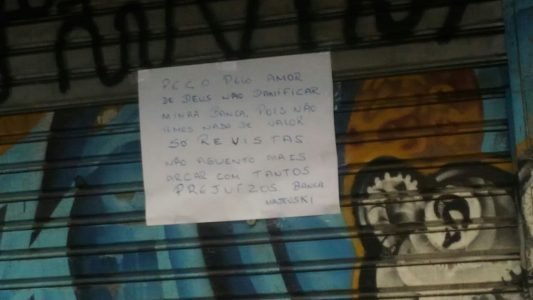 PEÇO PELO AMOR
DE DEUS NÃO DANIFICAR
MINHA BANCA, POIS NÃO
TEMOS NADA DE VALOR
SÓ REVISTAS
NÃO AGUENTO MAIS
ARCAR COM TANTOS
PREJUÍZOS BANCA